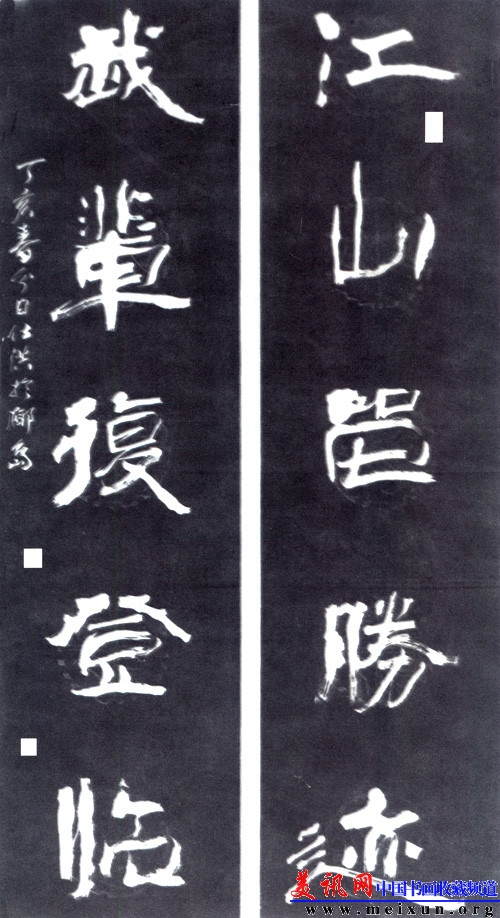 江山留勝迹
我輩復登臨
丁亥春分日仕洪於
美讯网 中国书画收藏频道
www.meixun.org